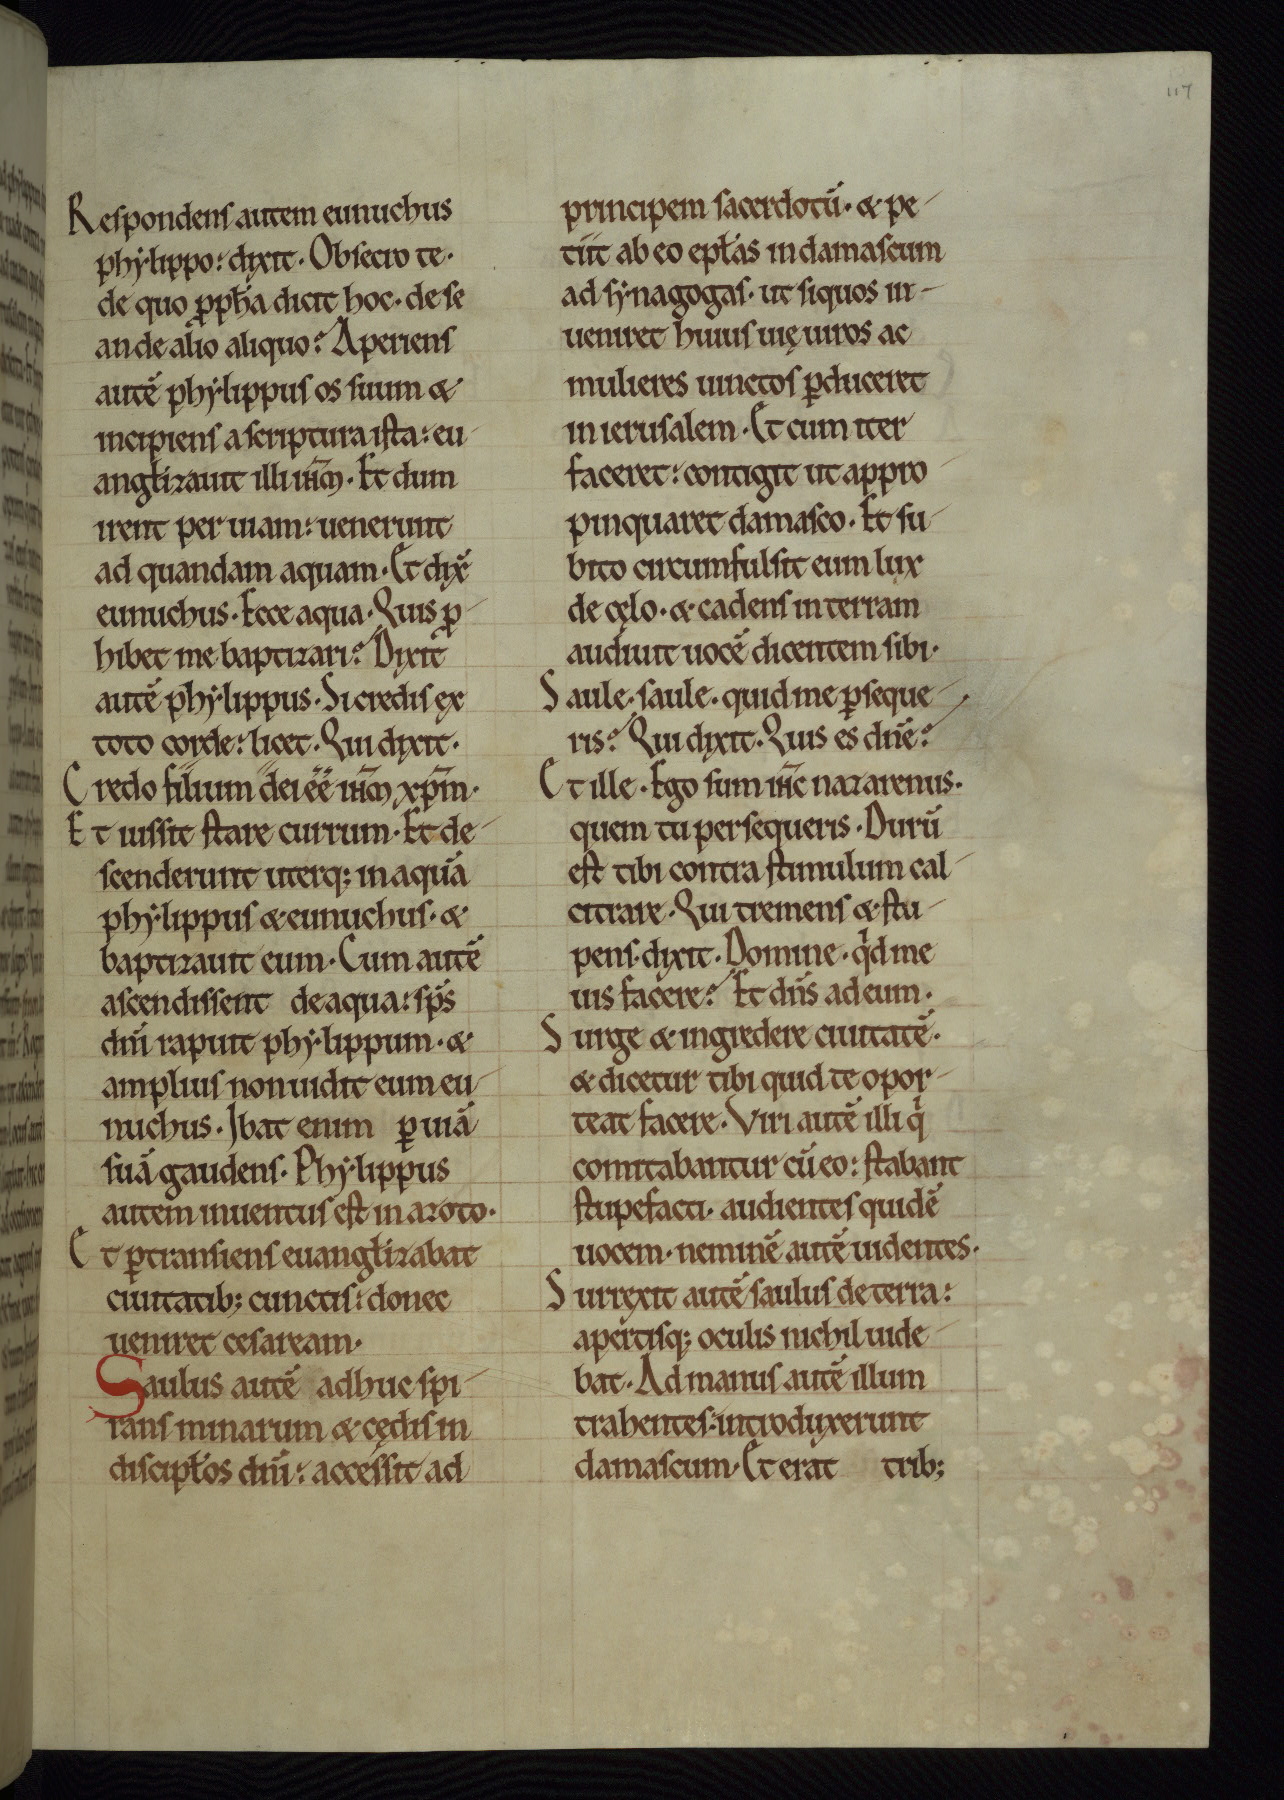 117
Respondens autem eunuchus
phylippo: dixit. Obsecro te.
de quo ꝓph̄a dicit hoc. de se
an de alio aliquo? Aperiens
autē phylippus os suum &
incipiens a scriptura ista: eu
angłizauit illi ih̄m. Et dum
irent per uiam: uenerunt
ad quandam aquam. Et dix̄
eunuchus. Ecce aqua. Quis ꝓ-
hibet me baptizari? Dixit
autē phylippus. Si credis ex
toto corde: licet. Qui dixit.
Credo filium dei ēē ih̄m xp̄m.
Et iussit stare currum. Et de-
scenderunt uterq; in aquā
phylippus & eunuchus. &
baptizauit eum. Cum autē
ascendissent de aqua: sp̄s
dn̄i rapuit phylippum. &
amplius non uidit eum eu-
nuchus. Ibat enim ꝑ uiā
suā gaudens. Phylippus
autem inuentus est in azoto.
Et ꝑtransiens euangłizabat
ciuitatib; cunctis: donec
ueniret cesaream.
Saulus autē adhuc spi-
rans minarum & cędis in
discipłos dn̄i: accessit ad
principem sacerdotū. & pe-
tiit ab eo epłas in damascum
ad synagogas. ut siquos in-
ueniret huius uię uiros ac
mulieres uinctos ꝑduceret
in ierusalem. Et cum iter
faceret: contigit ut appro-
pinquaret damasco. Et su-
bito circumfulsit eum lux
de cęlo. & cadens in terram
audiuit uocē dicentem sibi.
Saule. saule. quid me ꝑseque-
ris? Qui dixit. Quis es dn̄e?
Et ille. Ego sum ih̄c nazarenus.
quem tu persequeris. Durū
est tibi contra stimulum cal-
citrare. Qui tremens & stu-
pens. dixit. Domine. qd me
uis facere? Et dn̄s ad eum.
Surge & ingredere ciuitatē.
& dicetur tibi quid te opor-
teat facere. Viri autē illi q
comitabantur cū eo: stabant
stupefacti. audientes quidē
uocem. neminē autē uidentes.
Surręxit autē saulus de terra:
apertisq; oculis nichil uide-
bat. Ad manus autē illum
trahentes: introduxerunt
damascum. Et erat trib;